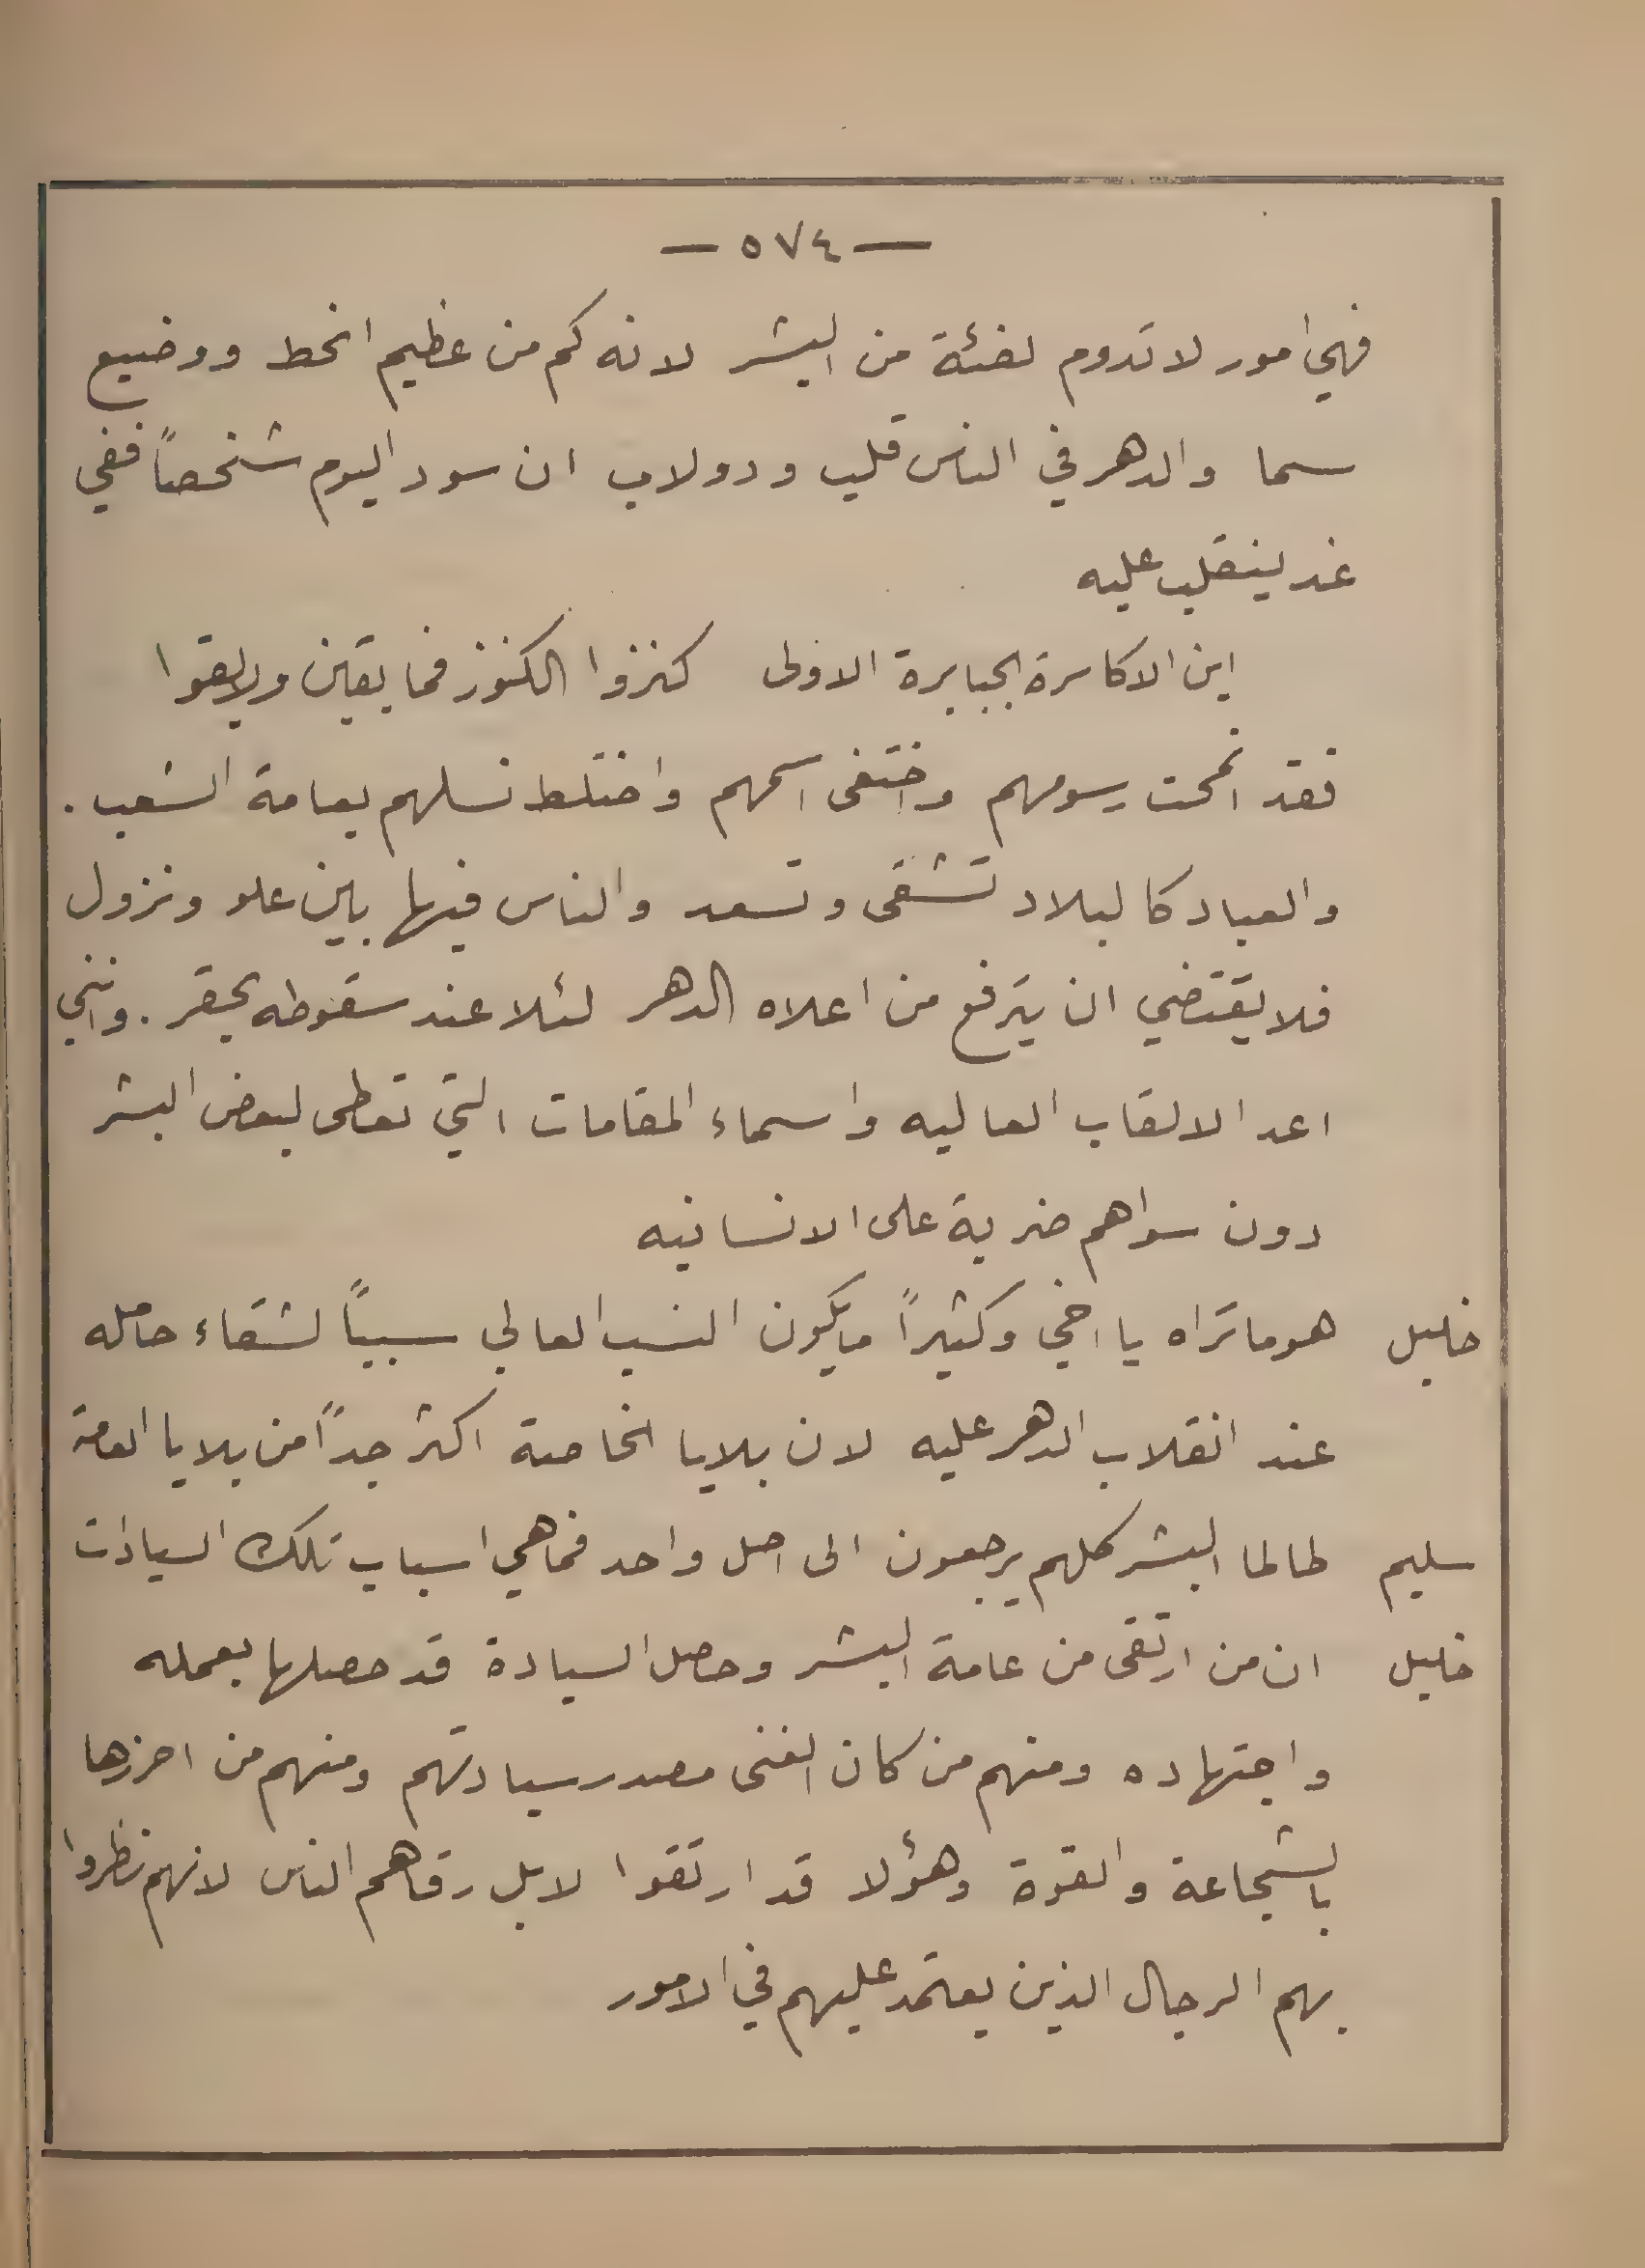 — ٥٧٤ —
فهي امور لا تدوم لفئة من البشر لانه كم من عظيم انحط ووضيع
سما والدهر في الناس قلب ودولاب ان سود اليوم شخصاً ففي
غد ينقلب عليه
اين الاكاسرة الجبابرة الاولى كنزوا الكنوز فما بقين ولا بقوا
فقد انمحت رسومهم واختفى اسمهم واختلط نسلهم بعامة الشعب .
والعباد كالبلاد تشقى وتسعد والناس فيها بين علو ونزول
فلا يقتضي ان يترفع من اعلاه الدهر لئلا عند سقوطه يحقر . وانني
اعد الالقاب العاليه واسماء المقامات التي تعطى لبعض البشر
دون سواهم ضربة على الانسانيه
خليل هو ما تراه يا اخي وكثيراً ما يكون النسب العالي سبباً لشقاء حامله
عند انقلاب الدهر عليه لان بلايا الخاصة اكثر جداً من بلايا العامة
سليم طالما البشر كلهم يرجعون الى اصل واحد فما هي اسباب تلك السيادات
خليل ان من ارتقى من عامة البشر وحصل السيادة قد حصلها بعمله
واجتهاده ومنهم من كان الغنى مصدر سيادتهم ومنهم من احرزها
بالشجاعة والقوة وهؤلا قد ارتقوا لا بل رقاهم الناس لانهم نظروا
بهم الرجال الذين يعتمد عليهم في الامور